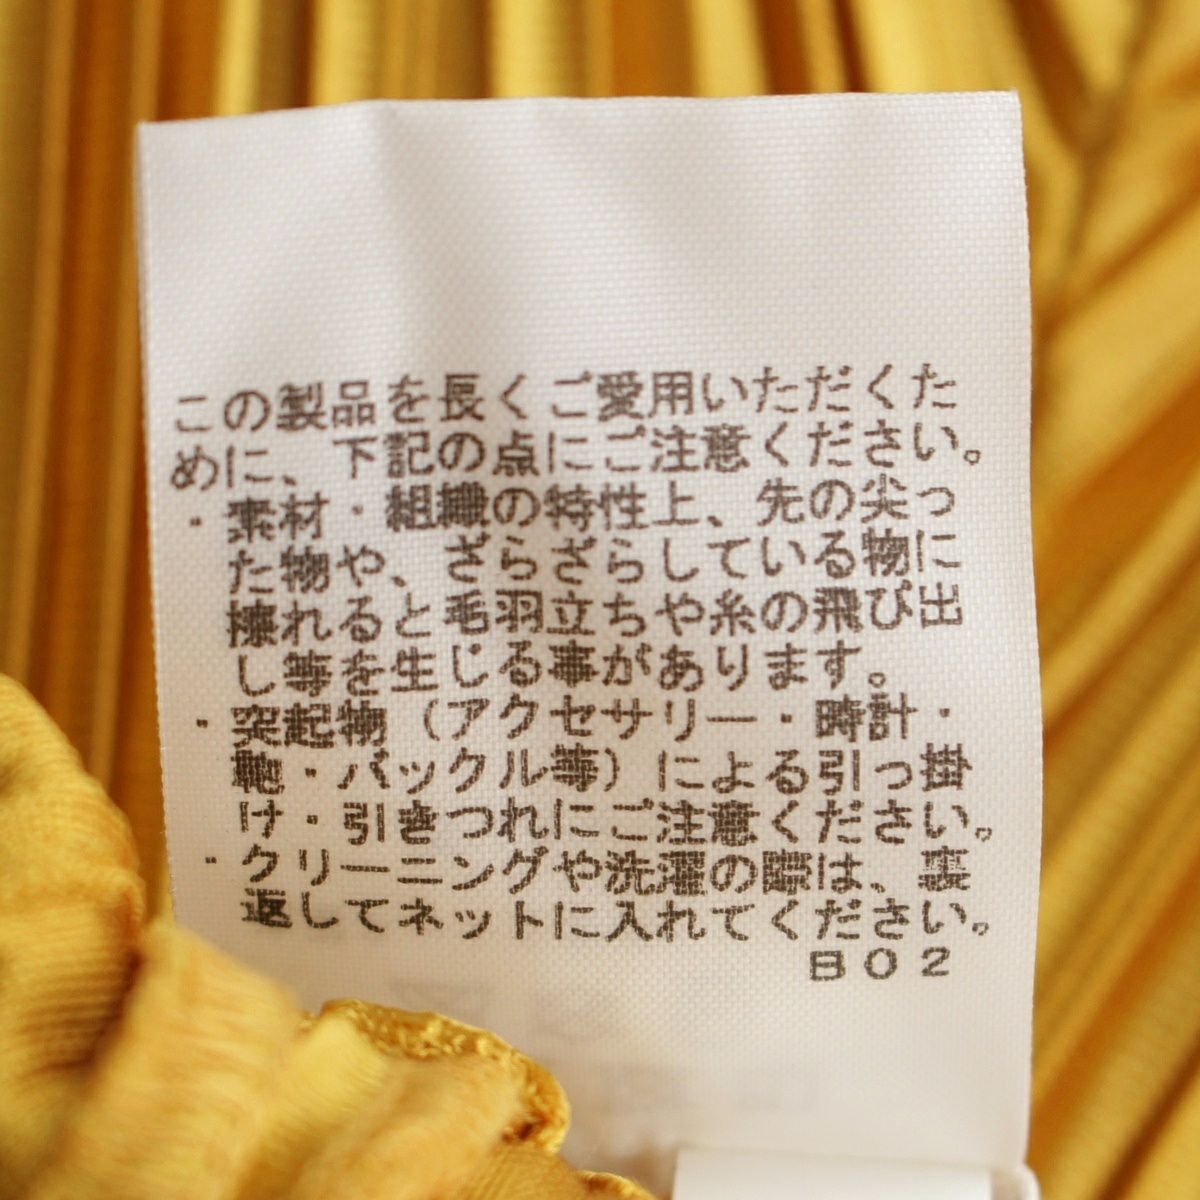 この製品を長くご愛用いただくた
めに、下記の点にご注意ください。
・素材・組織の特性上、先の尖っ
た物や、ざらざらしている物に
擦れると毛羽立ちや糸の飛び出
し等を生じる事があります。
・突起物（アクセサリー・時計・
鞄・バックル等）による引っ掛
け・引きつれにご注意ください。
・クリーニングや洗濯の際は、裏
返してネットに入れてください。
B02